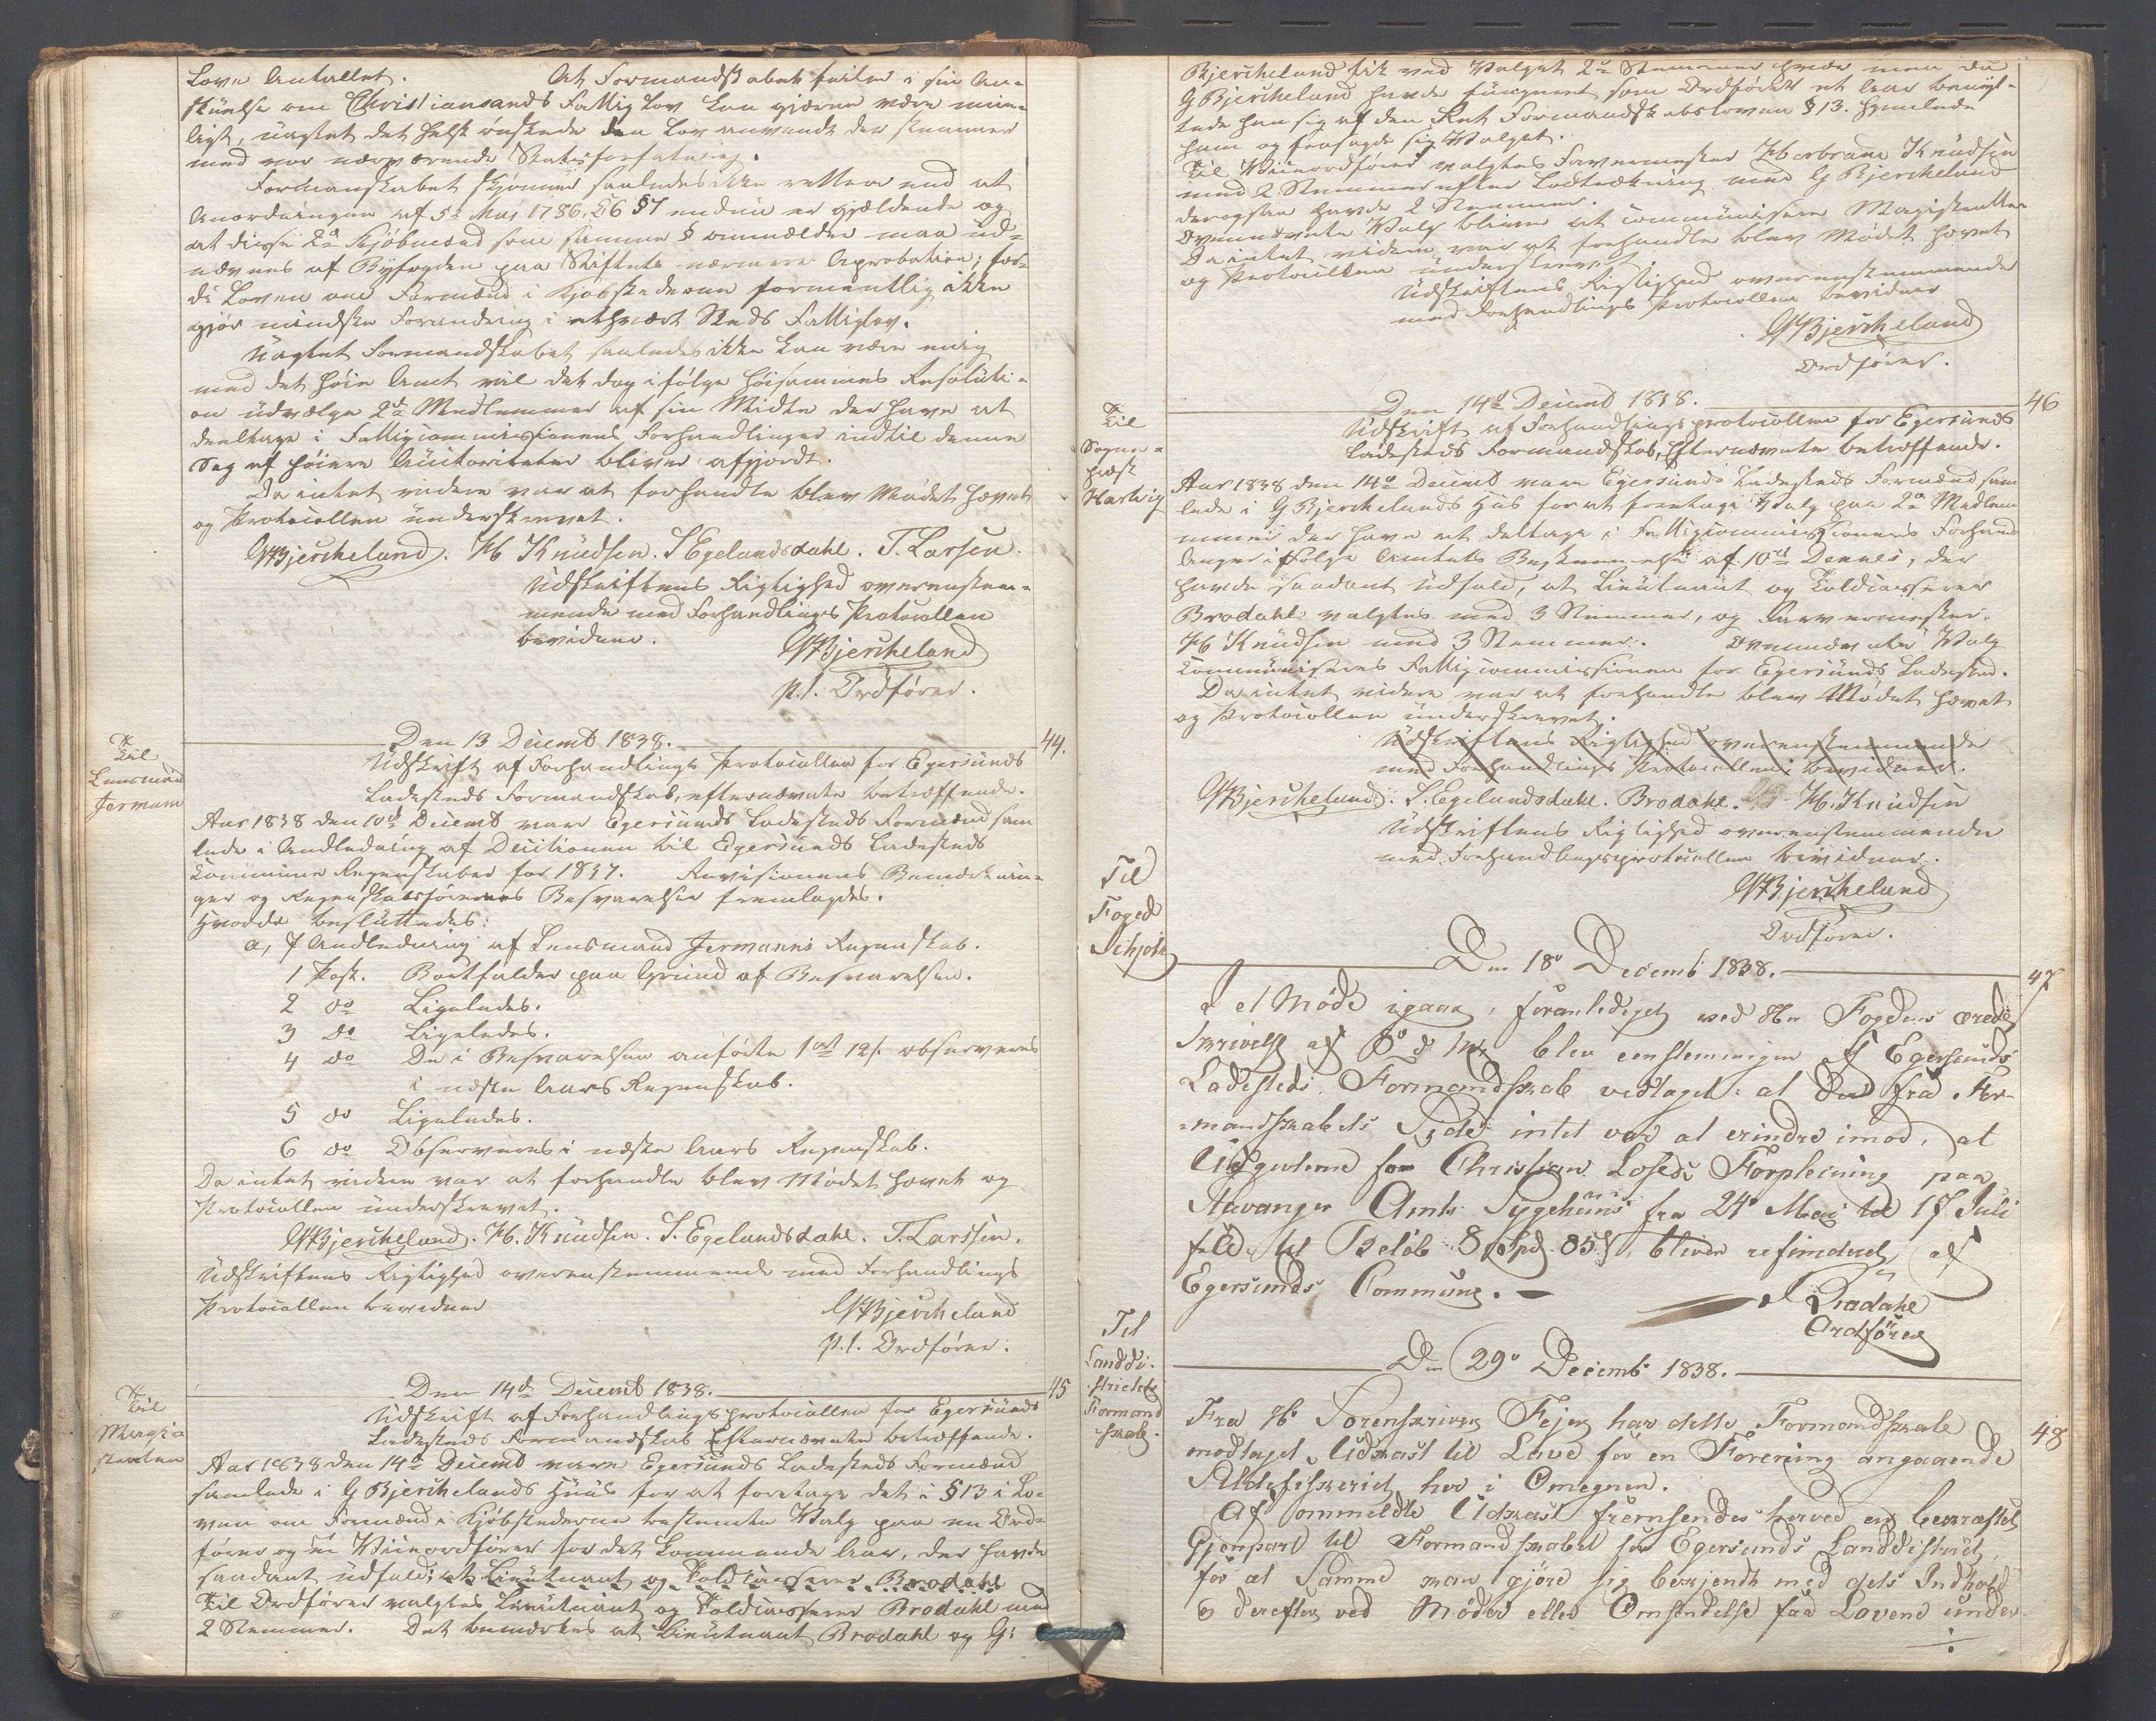 Love Antallet. At Formandskabet feiler i sin An-
skuelse om Christiansands Fattig Lov kan gjærne være mue-
ligt, uagtet det helst ønskede den Lov anvendt der stemmer
med vor nærværende Statsforfatning.
Formandskabet skjønner saaledes ikke rettere end at
Anordningen af 5te Mai 1786. C 6 § 7 endnu er gjældende og
at disse 2de Kjøbmænd som samme § ommelder maa ud-
nævnes af Byfogden paa Stiftets nærmere Aprobation; for-
di Loven om Formænd i Kjøbstæderne formentlig ikke
gjør mindste Forandring i ethvært Steds Fattiglov.
Uagtet Formandskabet saaledes ikke kan være enig
med det høie Amt vil det dog ifølge høisammes Resoluti-
on udvælge 2de Medlemmer af sin Midte der have at
deeltage i Fattigcommissionens Forhandlinger indtil denne
Sag af høiere Auctoriteter bliver afgjordt.
Da intet videre var at forhandle blev Mødet hævet
og Protocollen underskrevet.
G Bjercheland. Hb Knudsen. S Egelandsdahl. T. Larsen.
Udskriftens Rigtighed overensstem-
mende med Forhandlings Protocollen
bevidner.
G Bjercheland
p. t. Ordfører.
Den 13 Decemb 1838.
44.
Til
Lensmand
Jermann
Udskrift af Forhandlings Protocollen for Egersunds
Ladesteds Formandskab, efternævnte betræffende.
Aar 1838 den 10de Decemb vare Egersunds Ladesteds Formænd sam
lede i Andledning af Decitionen til Egersunds Ladesteds
Commune Regnskaber for 1837. Revisionens Bemærknin-
ger og Regnskabsførernes Besvarelser fremlagdes.
Hvorda besluttedes:
a, I Andledning af Lensmand Jermanns Regnskab.
1 Post. Bortfalder paa Grund af Besvarelsen.
2 do Ligeledes.
3 do Ligeledes.
4 do De i Besvarelsen anførte 1 ort 12 s. observeres
i næste Aars Regnskab.
5 do Ligeledes.
6 do Observeres i næste Aars Regnskab.
Da intet videre var at forhandle blev Mødet hævet og
Protocollen underskrevet.
G Bjercheland. Hb. Knudsen. S. Egelandsdahl. T. Larssen.
Udskriftens Rigtighed overensstemmende med Forhandlings
Protocollen bevidner
G Bjercheland
p. t. Ordfører.
Den 14de Decemb 1838.
45
Til
Magi-
straten
Udskrift af Forhandlingsprotocollen for Egersunds
Ladesteds Formandskab Efternævnte betræffende.
Aar 1838 den 14de Decemb vare Egersunds Ladesteds Formænd
samlede i G Bjerchelands Huus for at foretage det i § 13 i Lo-
ven om Formænd i Kjøbstæderne bestemte Valg paa en Ord-
fører og en Viceordfører for det kommende Aar, der havde
saadant udfald: at Lieutnant og Toldcasserer Brodahl
Til Ordfører valgtes Lieutnant og Toldcasserer Brodahl med
2 Stemmer. Det bemærkes at Lieutnant Brodahl og G:
Bjercheland fik ved Valget 2de Stemmer hver men da
G Bjercheland havde fungeret som Ordfører et Aar benyt-
tede han sig af den Ret Formandskabsloven § 13. hjemlede
ham og frasagde sig Valget.
Til Viceordfører valgtes Farvermester Herbrane Knudsen
med 2 Stemmer efter Lodtrækning med G Bjercheland
der ogsaa havde 2 Stemmer.
Ovennævnte Valg bliver at communisere Magistratten
Da intet videre var at forhandle blev Mødet hævet
og Protocollen underskrevet.
Udskriftens Rigtighed overensstemmende
med Forhandlings Protocollen bevidner
G Bjercheland
Ordfører.
Den 14d Decemb 1838.
46
Til
Sogne-
præst
Hartvig
Udskrift af Forhandlingsprotocollen for Egersunds
Ladesteds Formandskab, Efternævnte betræffende.
Aar 1838 den 14de Decemb vare Egersunds Ladesteds Formænd sam
lede i G Bjerchelands Hus for at foretage Valg paa 2de Medlem
mer der have at deltage i Fattigcommissionens Forhand
linger ifølge Amtets Bestemmelse af 10de Dennes, der
havde saadant Udfald, at Lieutnant og Toldcasserer
Brodahl valgtes med 3 Stemmer, og Farvermester
Hb Knudsen med 3 Stemmer. Ovennævnte Valg
Communiseres Fattigcommissionen for Egersunds Ladested.
Da intet videre var at forhandle blev Mødet hævet
og Protocollen underskrevet.
Udskriftens Rigtighed overensstemmende
med Forhandlings Protocollen bevidner.
G Bjercheland. S. Egelandsdahl. Brodahl. H. Knudsen
Udskriftens Rigtighed overensstemmende
med Forhandlingsprotocollen bevidner.
G Bjercheland
Ordfører.
Den 18de Decemb 1838.
47
Til
Foged
Schjøtz
I et Møde igaar, foranlediget ved Hr Fogdens ærede
Skrivelse af 8de d M. blev eenstemmigen af Egersunds
Ladesteds Formandsskab vedtaget: at der fra For-
mandsskabets Side intet var at erindre imod, at
Udgivterne for Christian Losed's Forpleining paa
Stavanger Amts Sygehuus fra 24de Mai til 17 Juli
feld til Beløb 8 Spd 85 s, bliver refunderet af
Egersunds Commune. —
Brodahl
Ordfører
Den 29de Decemb 1838.
48
Til
Landdi-
strichts
Formand
skab.
Fra Hr Sorenskriver Fejer har dette Formandsskab
modtaget Udkast til Love for en Forening angaaende
Sildefiskeriet her i Omegnen.
Af ommeldte Udkast fremsendes herved en bekræftet
Gjenpart til Formandsskabet for Egersunds Landdistrict,
for at Samme kan gjøre sig bekjendt med dets Indhold
og derefter ved Møder eller Omsendelse faa Lovene under
÷